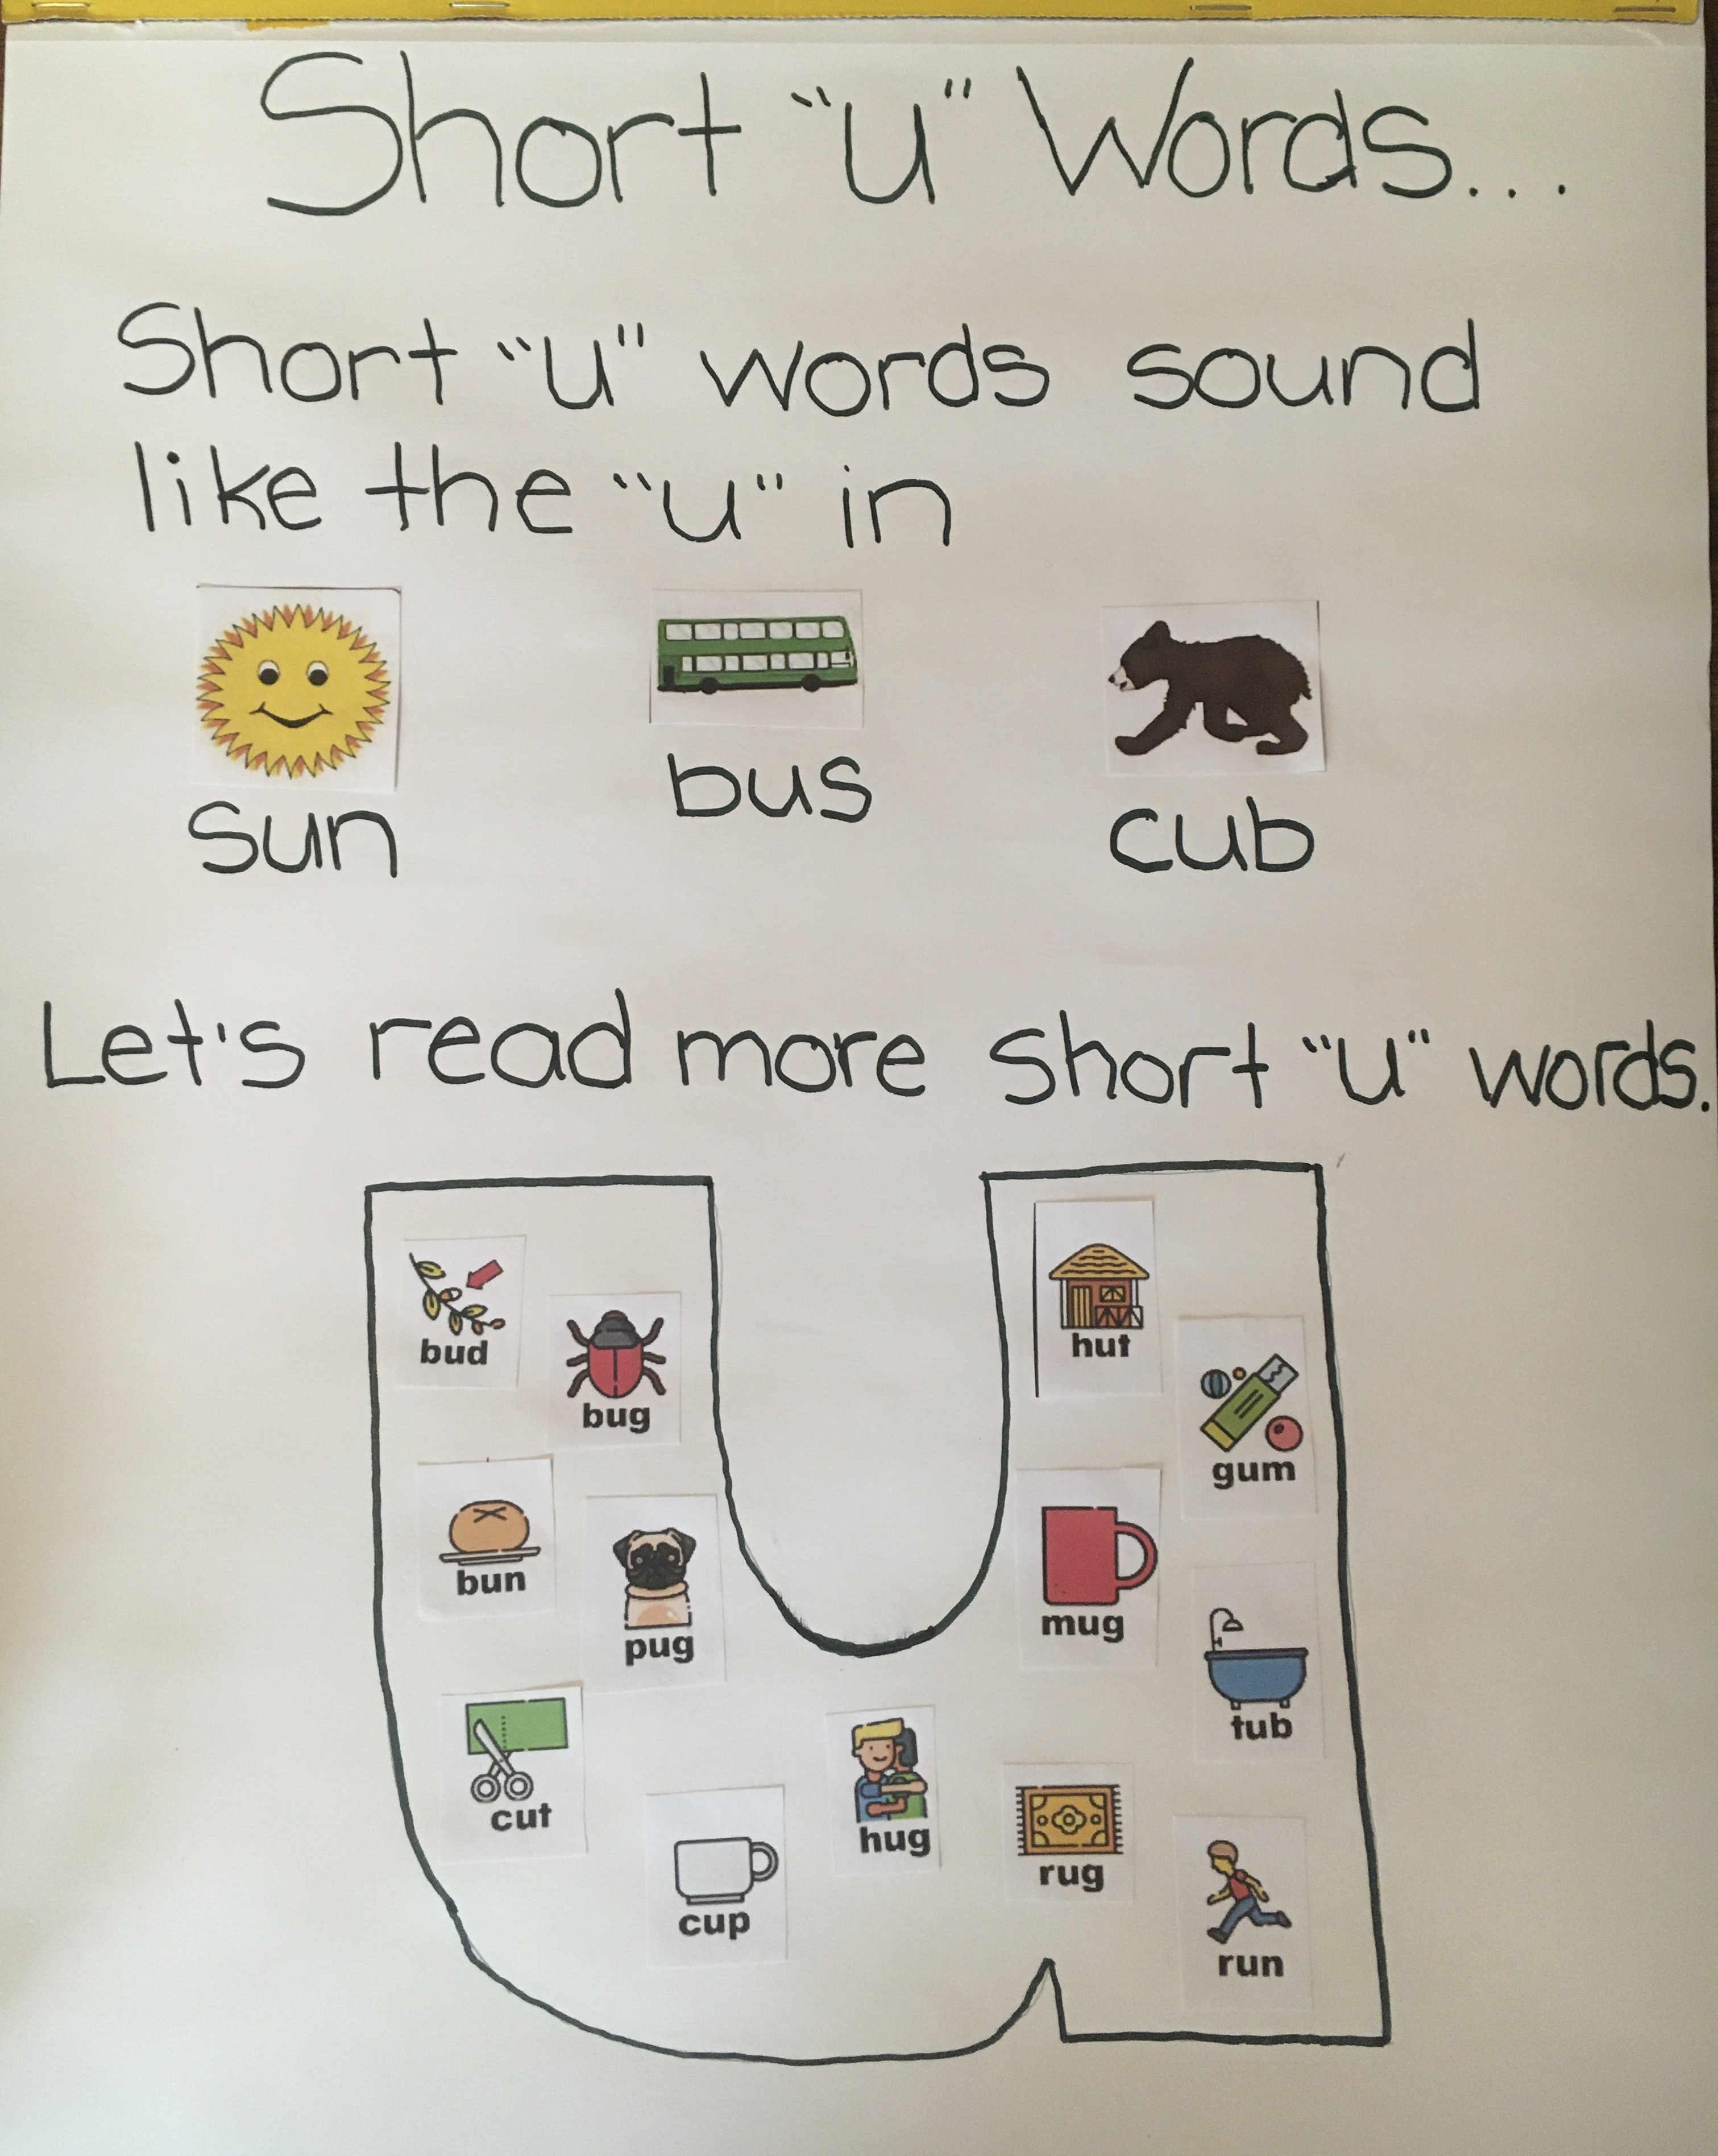 Short "u" Words...
Short "u" words sound
like the "u" in
sun
bus
cub
Let's read more short "u" words.
bud
bug
bun
pug
cut
cup
hug
hut
gum
mug
tub
rug
run